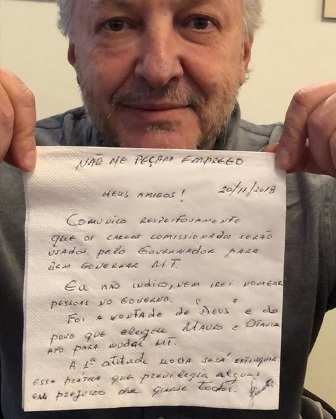 NÃO ME PEÇAM EMPREGO
MEUS AMIGOS! 20/11/2018
COMUNICO RESPEITOSAMENTE
QUE OS CARGOS COMISSIONADOS SERÃO
USADOS PELO GOVERNADOR PARA
BEM GOVERNAR MT.
EU NÃO INDICO, NEM IREI NOMEAR
PESSOAS NO GOVERNO.
FOI A VONTADE DE "DEUS" E DO
POVO QUE ELEGEU MAURO E OTAVIANO
PARA MUDAR MT.
A 1ª ATITUDE NOSSA SERÁ EXTINGUIR
ESSA PRÁTICA QUE PRIVILEGIA ALGUNS
EM PREJUÍZO DE QUASE TODOS.